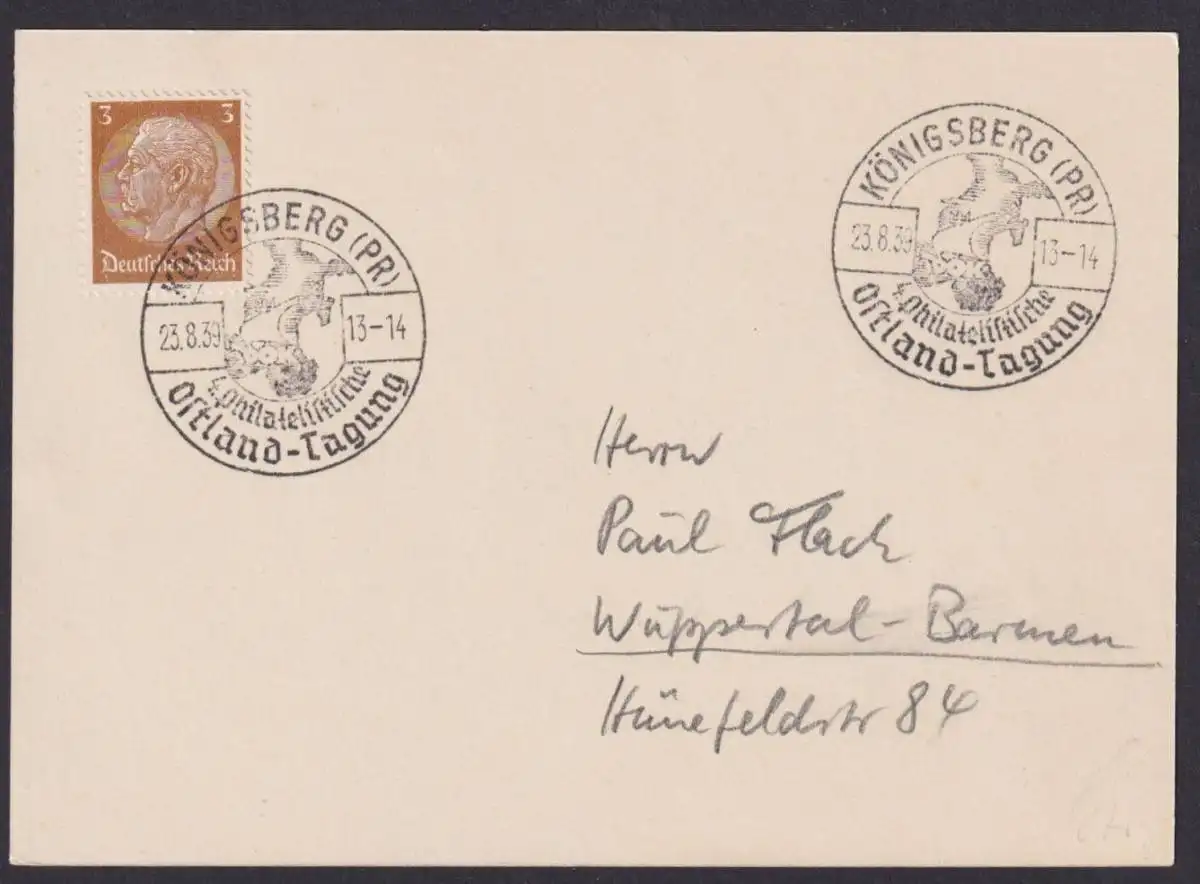 3 3
Deutsches Reich
KÖNIGSBERG (PR)
23.8.39 13-14
4. philatelistische
Ostland-Tagung
KÖNIGSBERG (PR)
23.8.39 13-14
4. philatelistische
Ostland-Tagung
Herrn
Paul Flack
Wuppertal-Barmen
Hünefeldstr 84